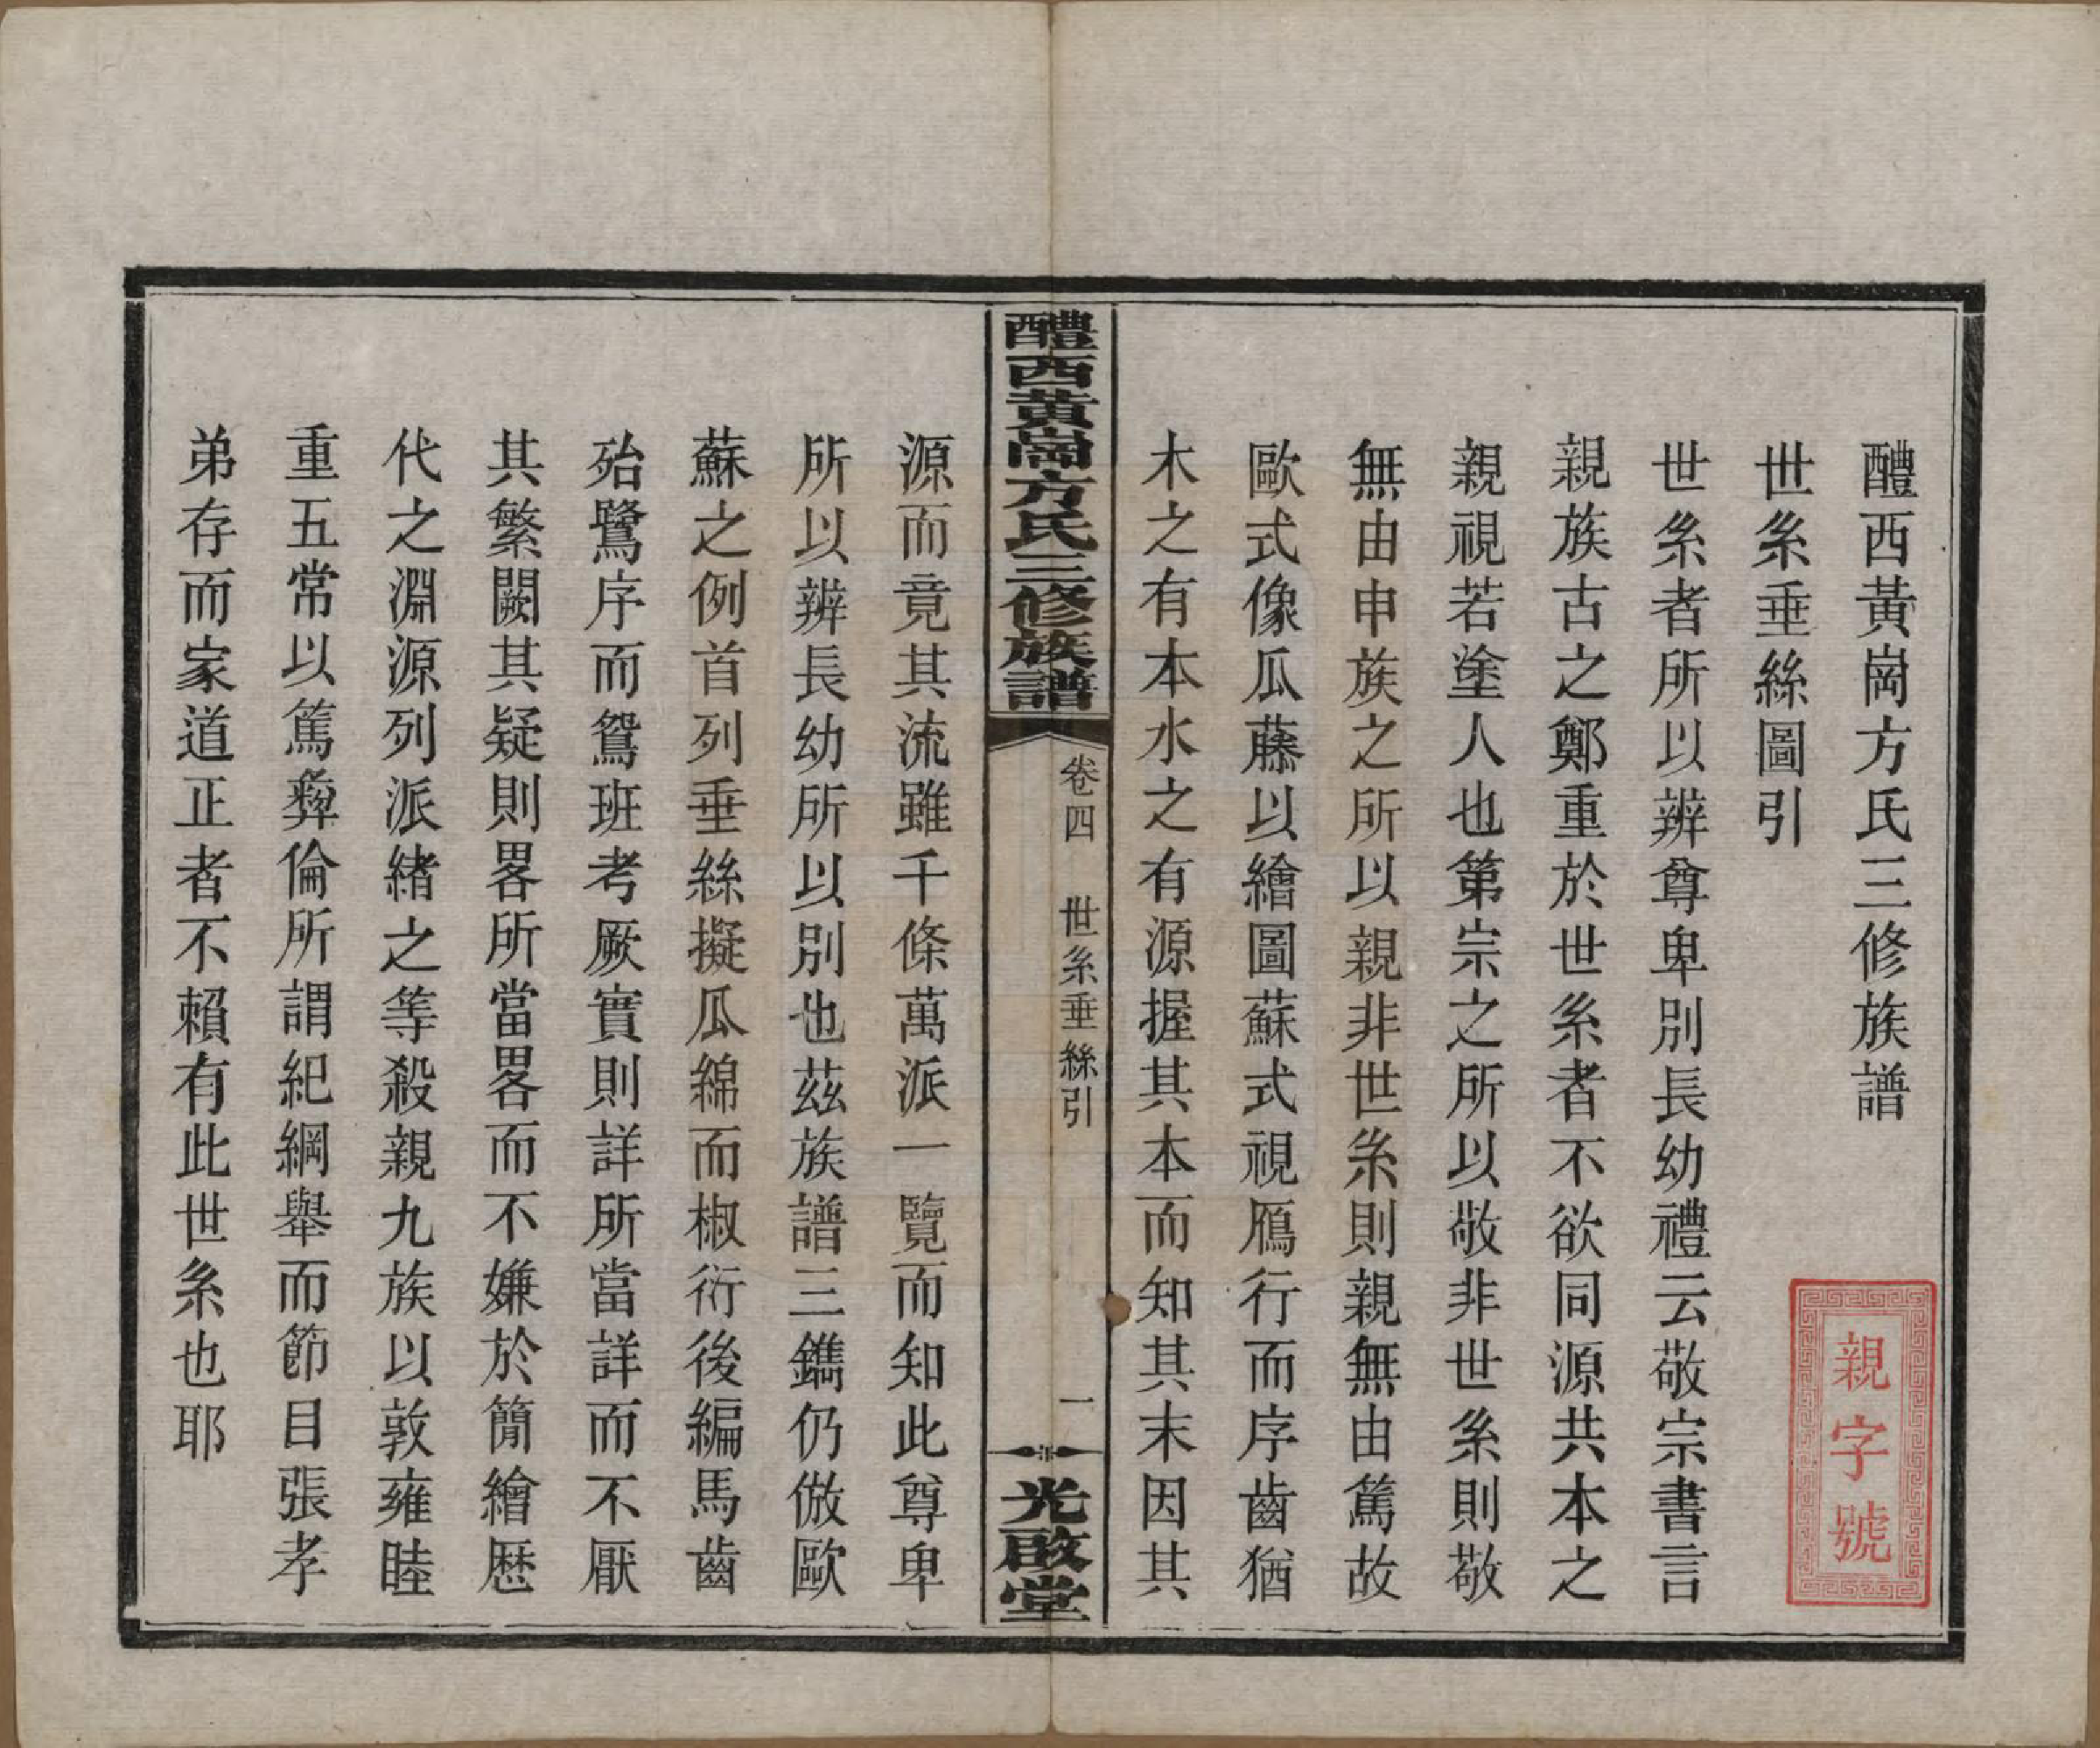 醴西黃崗方氏三修族譜
世系垂絲圖引
世系者所以辨尊卑別長幼禮云敬宗書言
親族古之鄭重於世系者不欲同源共本之
親視若塗人也第宗之所以敬非世系則敬
無由申族之所以親非世系則親無由篤故
歐式像瓜藤以繪圖蘇式視鴈行而序齒猶
木之有本水之有源握其本而知其末因其
醴西黃崗方氏三修族譜
卷四 世系垂絲引
一
光啟堂
源而竟其流雖千條萬派一覽而知此尊卑
所以辨長幼所以別也茲族譜三鐫仍倣歐
蘇之例首列垂絲擬瓜綿而椒衍後編馬齒
殆鷺序而鴛班考厥實則詳所當詳而不厭
其繁闕其疑則畧所當畧而不嫌於簡繪歷
代之淵源列派緒之等殺親九族以敦雍睦
重五常以篤彝倫所謂紀綱舉而節目張孝
弟存而家道正者不賴有此世系也耶
親字號